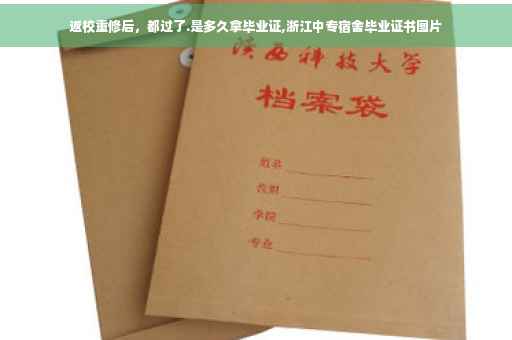 返校重修后，都过了.是多久拿毕业证,浙江中专宿舍毕业证书图片
陕西科技大学
档案袋
姓名
学院
专业